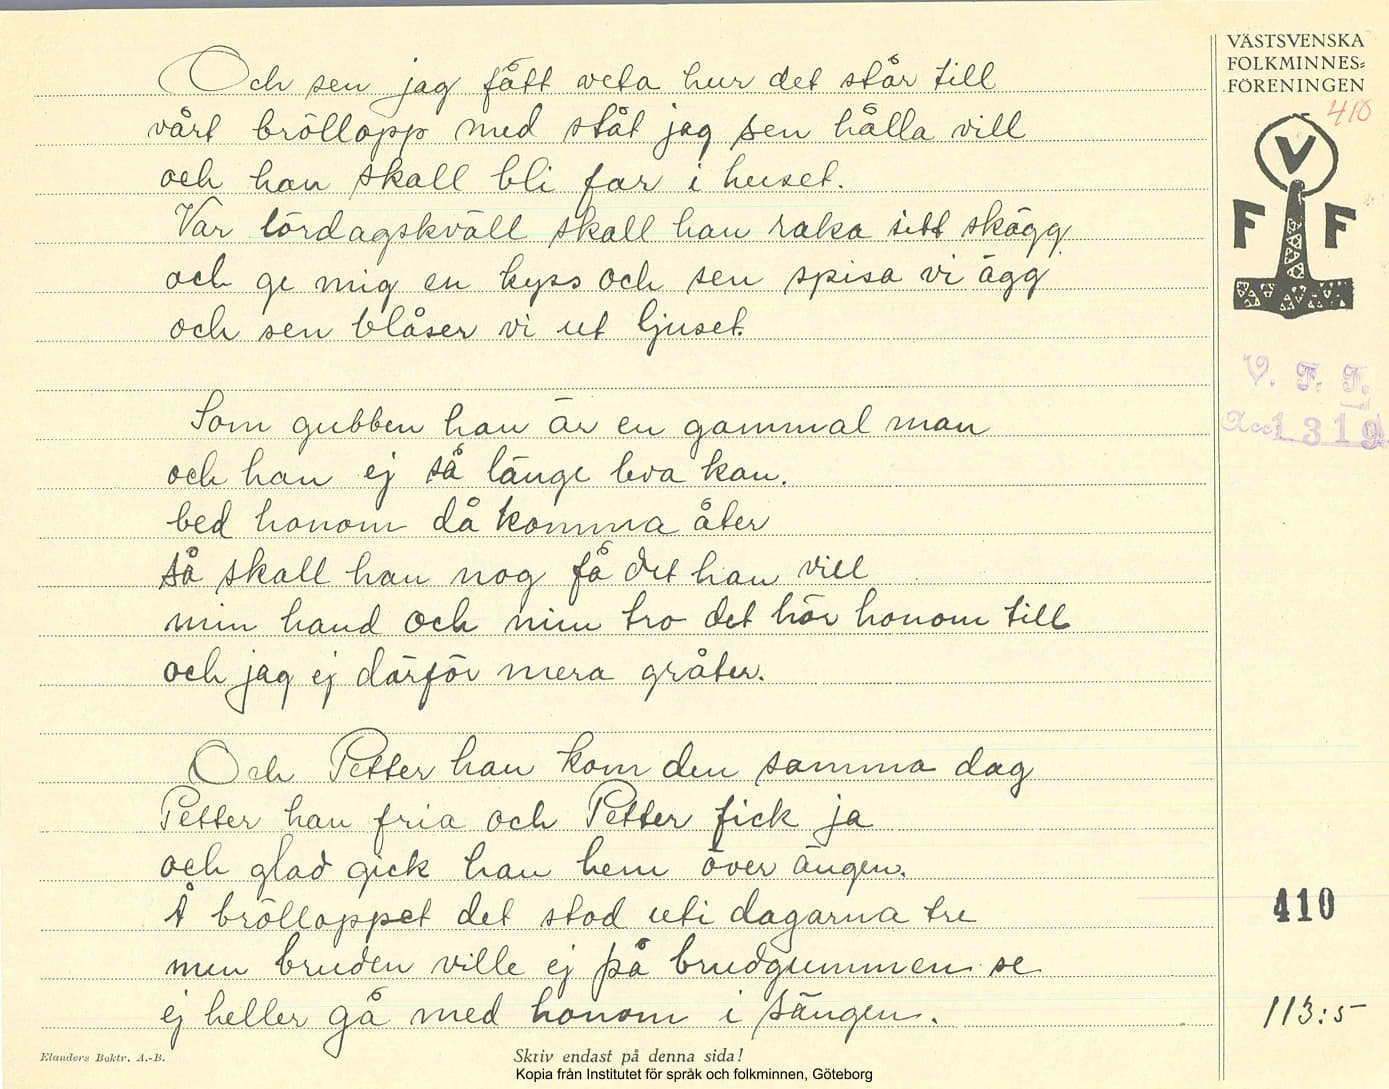 VÄSTSVENSKA
FOLKMINNES=
FÖRENINGEN
410
V
F F
V. F. F.
Acc 1319
Och sen jag fått veta hur det står till
vårt bröllopp med ståt jag sen hålla vill
och han skall bli far i huset.
Var lördagskväll skall han raka sitt skägg
och ge mig en kyss och sen spisa vi ägg
och sen blåser vi ut ljuset.
Som gubben han är en gammal man
och han ej så länge leva kan.
bed honom då komma åter
så skall han nog få det han vill
min hand och min tro det hör honom till
och jag ej därför mera gråter.
Och Petter han kom den samma dag
Petter han fria och Petter fick ja
och glad gick han hem över ängen.
Å bröllappet det stod uti dagarna tre
men bruden ville ej på brudgummen se
ej heller gå med honom i sängen.
410
113:5
Elanders Boktr. A.-B.
Skriv endast på denna sida!
Kopia från Institutet för språk och folkminnen, Göteborg